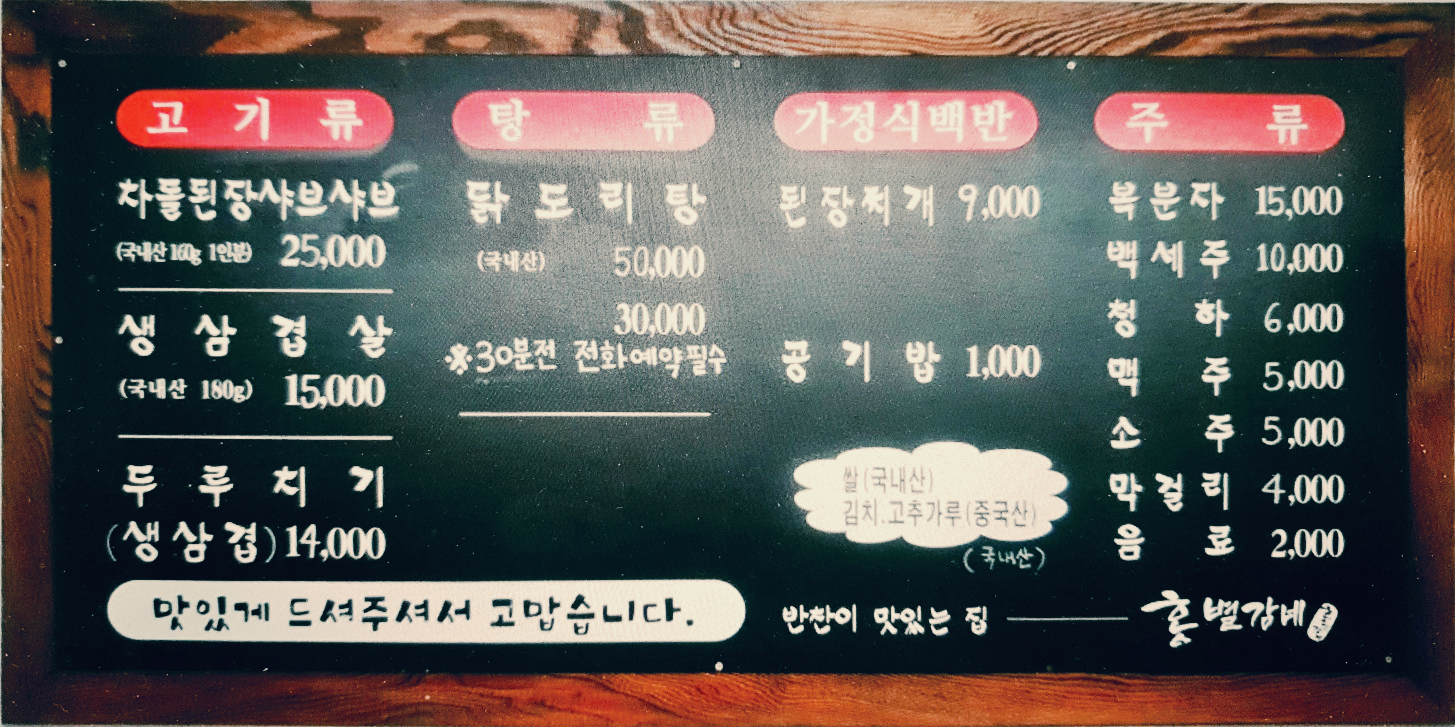 고기류
차돌된장샤브샤브
(국내산 160g 1인분) 25,000
생삼겹살
(국내산 180g) 15,000
두루치기
(생삼겹) 14,000
탕류
닭도리탕
(국내산) 50,000
30,000
※30분전 전화예약필수
가정식백반
된장찌개 9,000
공기밥 1,000
쌀(국내산)
김치.고추가루(중국산)
(국내산)
주류
복분자 15,000
백세주 10,000
청하 6,000
맥주 5,000
소주 5,000
막걸리 4,000
음료 2,000
맛있게 드셔주셔서 고맙습니다.
반찬이 맛있는 집
홍별감네